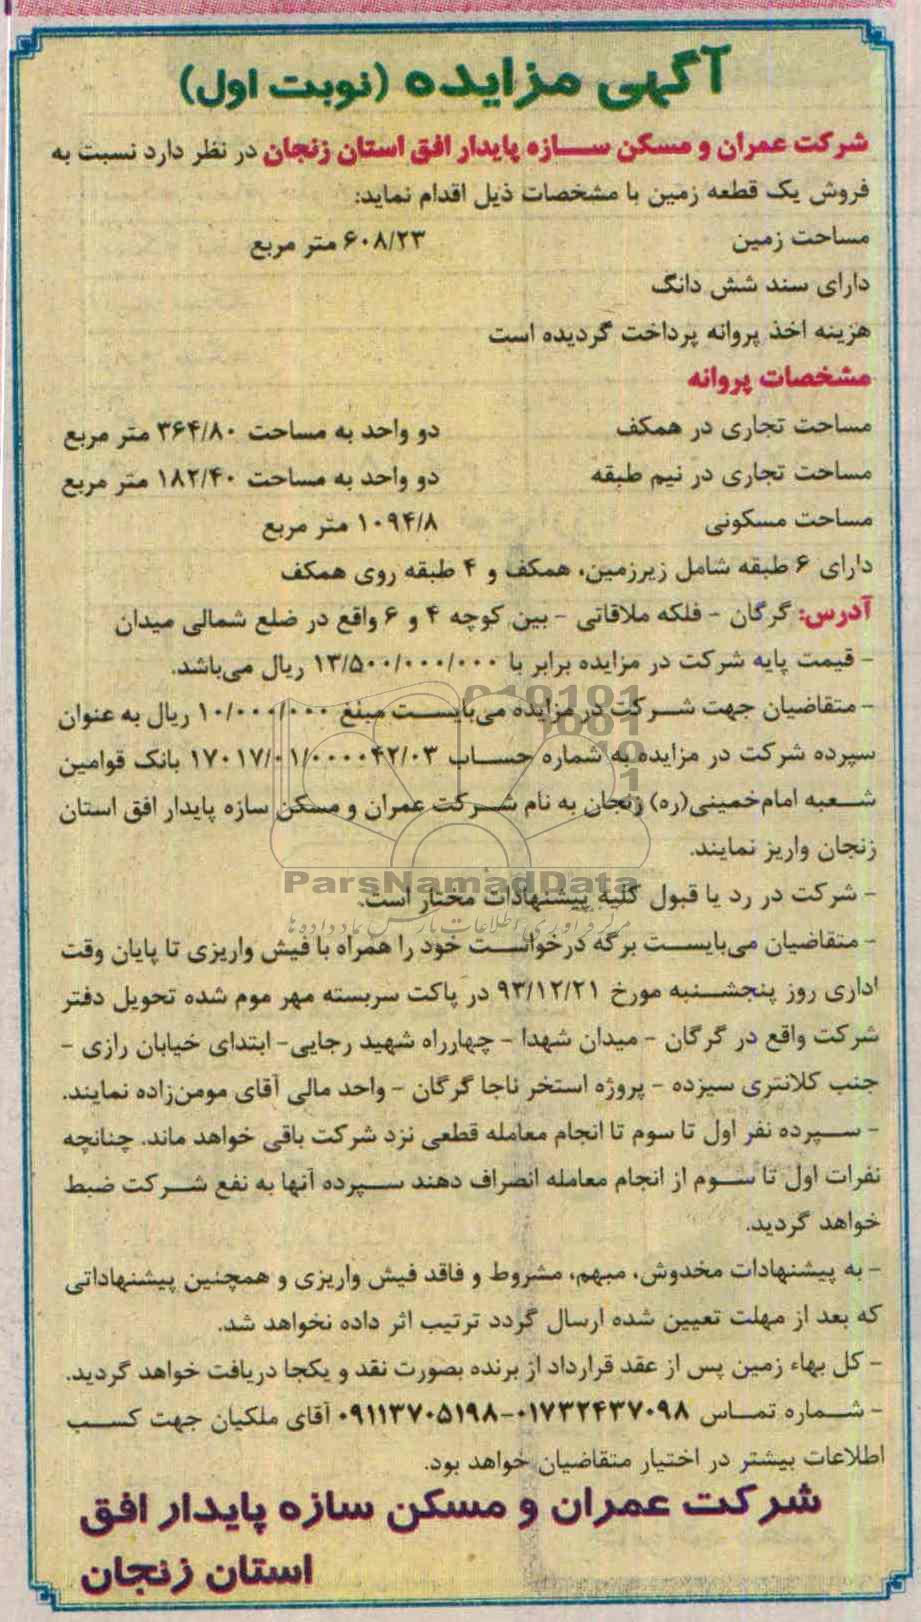 آگهی مزایده (نوبت اول)
شرکت عمران و مسکن سازه پایدار افق استان زنجان در نظر دارد نسبت به
فروش یک قطعه زمین با مشخصات ذیل اقدام نماید:
مساحت زمین ۶۰۸/۲۳ متر مربع
دارای سند شش دانگ
هزینه اخذ پروانه پرداخت گردیده است
مشخصات پروانه
مساحت تجاری در همکف دو واحد به مساحت ۳۶۴/۸۰ متر مربع
مساحت تجاری در نیم طبقه دو واحد به مساحت ۱۸۲/۴۰ متر مربع
مساحت مسکونی ۱۰۹۴/۸ متر مربع
دارای ۶ طبقه شامل زیرزمین، همکف و ۴ طبقه روی همکف
آدرس: گرگان - فلکه ملاقاتی - بین کوچه ۴ و ۶ واقع در ضلع شمالی میدان
- قیمت پایه شرکت در مزایده برابر با ۱۳/۵۰۰/۰۰۰/۰۰۰ ریال می‌باشد.
- متقاضیان جهت شرکت در مزایده می‌بایست مبلغ ۱۰/۰۰۰/۰۰۰ ریال به عنوان
سپرده شرکت در مزایده به شماره حساب ۱۷۰۱۷/۰۱/۰۰۰۰۴۲/۰۳ بانک قوامین
شعبه امام‌خمینی(ره) زنجان به نام شرکت عمران و مسکن سازه پایدار افق استان
زنجان واریز نمایند.
ParsNamadData
- شرکت در رد یا قبول کلیه پیشنهادات مختار است.
- متقاضیان می‌بایست برگه درخواست خود را همراه با فیش واریزی تا پایان وقت
اداری روز پنجشنبه مورخ ۹۳/۱۲/۲۱ در پاکت سربسته مهر موم شده تحویل دفتر
شرکت واقع در گرگان - میدان شهدا - چهارراه شهید رجایی- ابتدای خیابان رازی -
جنب کلانتری سیزده - پروژه استخر ناجا گرگان - واحد مالی آقای مومن‌زاده نمایند.
- سپرده نفر اول تا سوم تا انجام معامله قطعی نزد شرکت باقی خواهد ماند. چنانچه
نفرات اول تا سوم از انجام معامله انصراف دهند سپرده آنها به نفع شرکت ضبط
خواهد گردید.
- به پیشنهادات مخدوش، مبهم، مشروط و فاقد فیش واریزی و همچنین پیشنهاداتی
که بعد از مهلت تعیین شده ارسال گردد ترتیب اثر داده نخواهد شد.
- کل بهاء زمین پس از عقد قرارداد از برنده بصورت نقد و یکجا دریافت خواهد گردید.
- شماره تماس ۰۱۷۳۲۴۳۷۰۹۸-۰۹۱۱۳۷۰۵۱۹۸ آقای ملکیان جهت کسب
اطلاعات بیشتر در اختیار متقاضیان خواهد بود.
شرکت عمران و مسکن سازه پایدار افق
استان زنجان